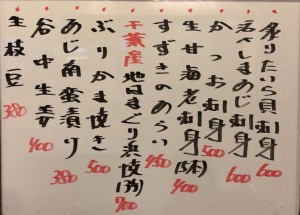 炙りたいら貝刺身 600
活〆しまあじ刺身 600
かつお刺身 500
生甘海老刺身(5本) 400
すずきのあらい 450
千葉産地はまぐり浜焼(3ヶ) 700
ぶりかま焼き 500
あじ南蛮漬り 380
谷中生姜 400
生枝豆 380